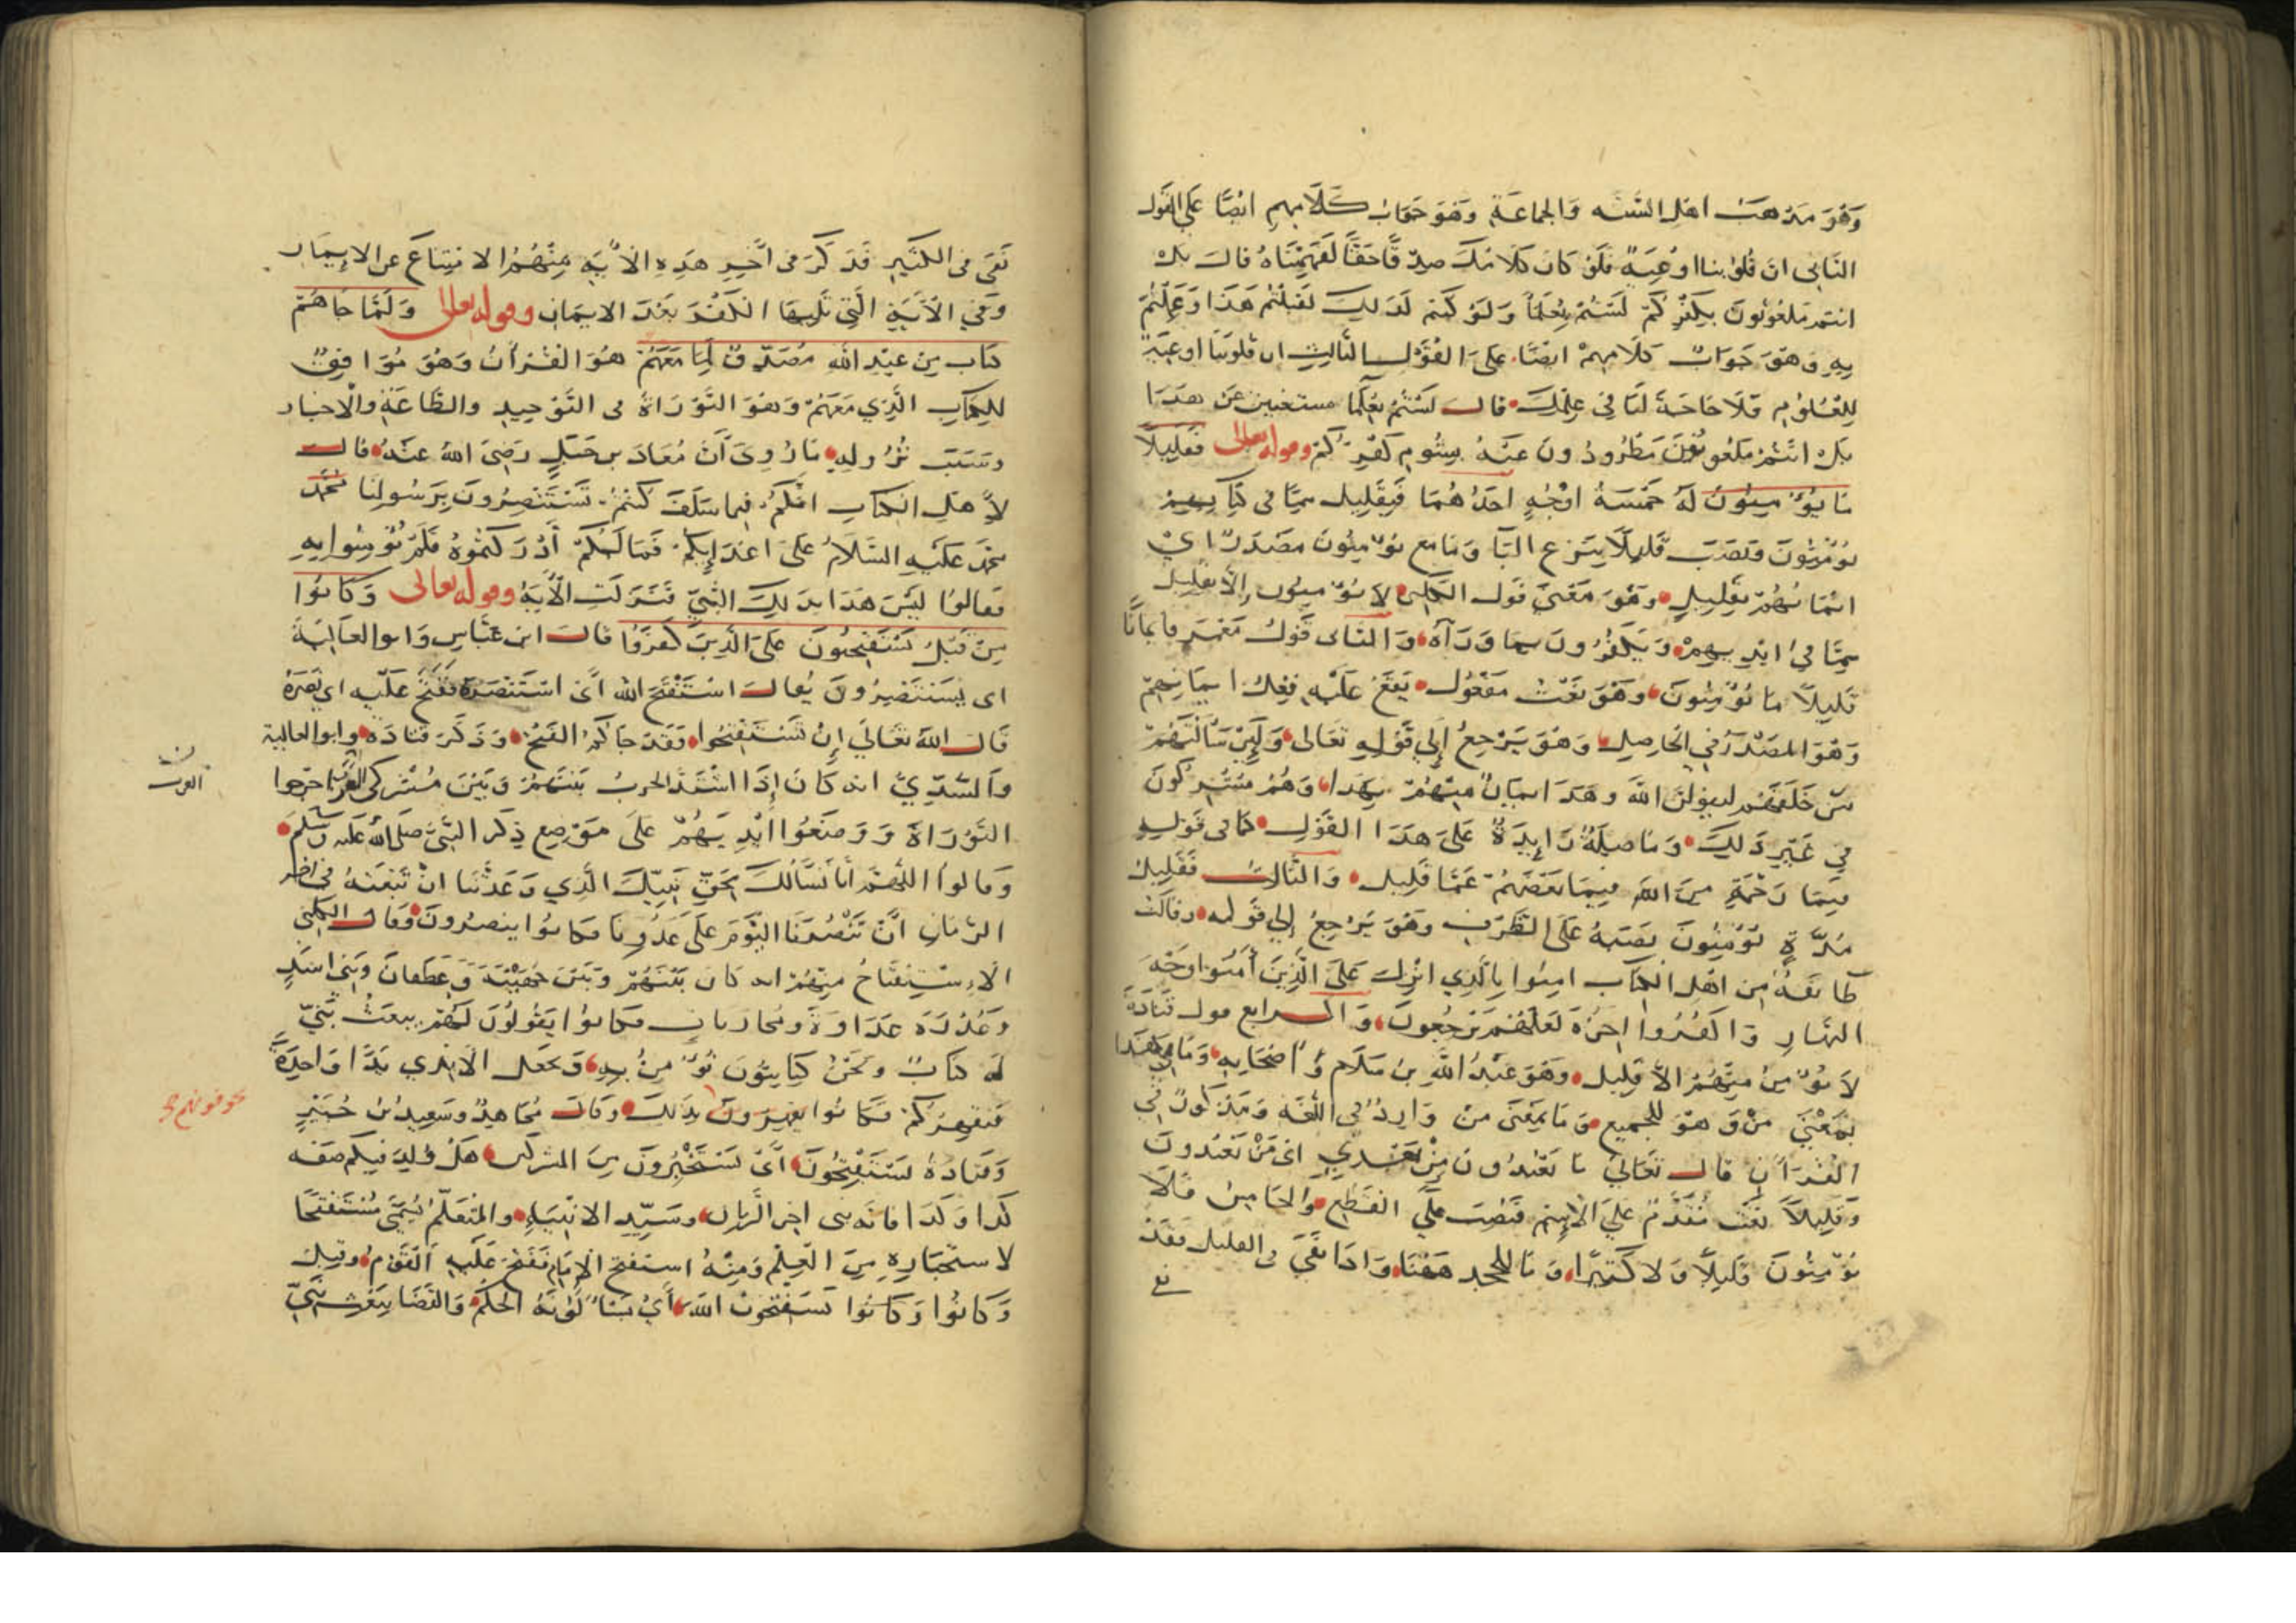 وَهُوَ مَذهَبُ اهل السنّه وَالجماعَةِ وَهُوَ جَوَابُ كَلَامِهِم ايضًا عَلَى القَول
الثانى ان قُلُوبنا اوعِيَةٌ فَلَوْ كانَ كَلَامُكَ صِدقًا حَقًّا لَفَهِمْنَاهُ قالَ بَل
انتم مَلعُونُونَ بِكفرِكُمْ لَسْتُمْ بِعُلَمَا وَلَوْ كنتم لَذلِكَ لَقَبِلْتُمْ هَذَا وَعَمِلْتُمْ
بِهِ وَهُوَ جَوَابُ كَلَامِهِمْ ايضًا عَلَى القَوْلِ الثالِثِ ان قلوبَنَا اوعِيَةٌ
لِلعُلُومِ فَلَا حَاجَةَ لَنَا فِى عِلمِكَ قالَ لَسْتُمْ بِعُلَمَا مستغنين عَنْ هذا
بَل انتُمْ مَلعُونُونَ مَطْرُودُونَ عَنْهُ بِشُومِ كُفْرِكُمْ وقوله تعالى فَقَلِيلًا
مَا يُؤْمِنُونَ لَهُ خَمْسَةُ اوْجُهٍ احَدُهُمَا فَبِقَلِيلٍ مِمَّا فى كِتَابِهِمْ
يُؤْمِنُونَ وَنَصَبَ قَلِيلًا بِنَزعِ البَا وَمَا مع يُؤْمِنُونَ مَصْدَرٌ اىْ
ايمَانُهُمْ بِقَلِيلٍ وَهُوَ مَعْنَى قَول الكلبى لا يُؤْمِنُونَ إِلَّا بِقَلِيلٍ
مِمَّا فِى ايْدِيهِمْ وَيَكفُرُونَ بِمَا وَرَآهُ وَالثانى قَولُ مَعْمَرٍ فايمانًا
قَلِيلًا مَا يُؤْمِنُونَ وَهُوَ نَعْتُ مَفْعُولٍ يَقَعُ عَلَيْهِ فِعلُ ايمَانِهِمْ
وَهُوَ المَصْدَرُ فِى الحَاصِلِ وَهُوَ يَرْجِعُ إِلَى قَوْلِهِ تَعَالى وَلَئِنْ سَأَلْتَهُمْ
مَنْ خَلَقَهُم ليقولنّ اللهُ وهَذَا ايمَانٌ مِنْهُمْ بِهَذا وَهُمْ مُشْرِكُونَ
فِى غَيْرِ ذَلِكَ وَمَا صِلَةٌ زَايِدَةٌ عَلَى هَذَا القَوْلِ كما فى قَوْلِهِ
فَبِمَا رَحْمَةٍ مِنَ اللهِ فَبِمَا نَقْضِهِمْ عَمَّا قَلِيلٍ وَالثَّالِثُ فَقَلِيلَ
مُدَّةٍ يُؤْمِنُونَ نَصَبَهُ عَلَى الظَّرْفِ وهُوَ يَرْجِعُ إلى قَوله وقَالَتْ
طَائِفَةٌ مِن اهْلِ الكتابِ امِنُوا بِالَّذِى انْزِلَ عَلَى الَّذِينَ أمَنُوا وَجْهَ
النهَارِ وَاكفُرُوا اخِرَهُ لَعَلَّهُمْ يَرْجِعُونَ وَالرابع قول قَتَادَةَ
لَا يُؤْمِنُ مِنْهُمْ الَّا قَلِيل وَهُوَ عَبْدُ اللهِ بنُ سَلَامٍ وَأصْحَابه وَمَا
بِمَعْنَى مَنْ وَهُوَ لِلجَمِيعِ وَمَا بمَعْنَى مَنْ وَارِدٌ فى اللُّغَةِ وَمَذكورٌ فِى
القُرَآنِ قالَ تَعَالَى مَا تَعْبُدُونَ مِنْ بَعْدِى اى مَنْ تَعْبُدُونَ
وَقَلِيلًا نَعْت مُتَقَدِّمٌ عَلَى الاسْمِ فَنُصِبَ عَلَى القَطْعِ وَالخَامِسُ فَلَا
يُؤْمِنُونَ قَلِيلًا وَلَا كَثِيرًا وَمَا لِلجحد هَهُنَا وَاذَا نَفَى فى القليل فقد
نفى
نَفَى فى الكثيرِ قَد ذكرَ فى آخِرِ هَذِهِ الاٰيَةِ مِنْهُمُ الامتِنَاعَ عن الايمَان
وَفِى الاٰيَةِ الَّتِى تَلِيهَا الكُفْرَ بَعْدَ الايمَانِ وقوله تعالى وَلَمَّا جَاهُمْ
كتاب مِن عِنْدِ اللهِ مُصَدِّقٌ لِمَا مَعَهُمْ هُوَ القُرْاٰنُ وَهُوَ مُوَافِقٌ
لِلكِتَابِ الَّذِى مَعَهُمْ وَهُوَ التَّوْرَاةُ فى التَّوْحِيدِ والطَّاعَةِ والْاخبار
وسَبَبُ نُزُولِهِ مَا رُوِىَ أَنَّ مُعَاذَ بن جَبَلٍ رَضِىَ اللهُ عَنْهُ قَالَ
لِأَهْلِ الكِتَابِ انكُمْ فيما سَلَفَ كُنْتُمْ تَسْتَنْصِرُونَ بِرَسُولِنَا مُحَمَّدٍ
محمد عَلَيْهِ السَّلَامُ عَلَى اعْدَائِكُمْ فَمَا لَكُمْ أَدْرَكتُمُوهُ فَلَمْ تُؤْمِنُوا بِهِ
فقالوا لَيْسَ هَذَا بِذَلِكَ النَّبِىِّ فَنَزَلَتِ الاٰيَةُ وقوله تعالى وَكَانُوا
مِنْ قَبْلُ يَسْتَفْتِحُونَ عَلَى الَّذِينَ كَفَرُوا قَالَ ابن عَبَّاسٍ وَابو العَالِيَةِ
اى يَسْتَنْصِرُونَ يُقَالُ اسْتَفْتَحَ اللهَ اىْ اسْتَنْصَرَهُ فَفَتَحَ عَلَيْهِ اى نَصَرَهُ
قَالَ اللهُ تَعَالَى إِنْ تَسْتَفْتِحُوا فَقَدْ جَاكُمُ الفَتْحُ وَذَكَرَ قَتَادَة وابو العالية
وَالسُّدِّىُّ انه كَانَ إِذَا اشْتَدَّ الحربُ بَيْنَهُمْ وَبَيْنَ مُشْرِكى العَرَب اخرجوا
التَّوْرَاةَ وَوَضَعُوا ايْدِيَهُمْ عَلَى مَوْضِعِ ذِكر النَّبِىِّ صَلَى اللهُ عَلَيه وَسَلَّمَ
وَقَالُوا اللَّهُمَّ انَا نَسْأَلُكَ بِحَقِّ نَبِيِّكَ الَّذِى وَعَدْتَنَا انْ تَبْعَثَهُ فى اخر
الزَّمَانِ انْ تَنْصُرَنَا اليَوْمَ عَلَى عَدُوِّنَا فكانُوا ينصرُونَ وقالَ الكلبى
الاِسْتِفْتَاحُ مِنْهُمْ انه كانَ بَيْنَهُمْ وَبَيْنَ جُهَيْنَةَ وَغَطَفَانَ وَبَنِى اسَدٍ
وَعُذْرَةَ عَدَاوَةٌ ومُحَارَبَات فكانُوا يَقُولُونَ لَهُمْ يبعَثُ نَبِىٌّ
لَهُ كتَابٌ ونَحْنُ كِتَابِيُّونَ نُؤْمِنُ بِهِ وَنجعَلُ الايْدِى يَدًا وَاحِدَةً
فَنَقهَرُكُمْ فَكَانُوا يَقهرُونَ بِذَلِكَ وقَالَ مُجَاهِدٌ وسَعِيدُ بْنُ جُبَيْرٍ
وَقَتَادَةُ يَسْتَفْتِحُونَ اىْ يَسْتَخْبِرُونَ مِنَ المشركين هَلْ وُلِدَ فيكم مَن صفته
كَذا وَكَذَا فانه نبى اخِر الزَّمَان وسَيِّد الانبيَاءِ والمُتعَلِّمُ يُسَمَّى مُسْتَفْتِحًا
لاستخْبَارِهِ مِنَ العِلْمِ وَمِنْهُ استفتح الامَامُ فَفَتَحَ عَلَيهِ القَوْمُ وقِيلَ
وَكَانُوا وَكَانُوا يَسْتَفْتِحُونَ اللهَ أَىْ يَسْألُونَهُ الحُكمَ وَالقَضَا بِبَعْثِ نَبِىٍّ
العرب